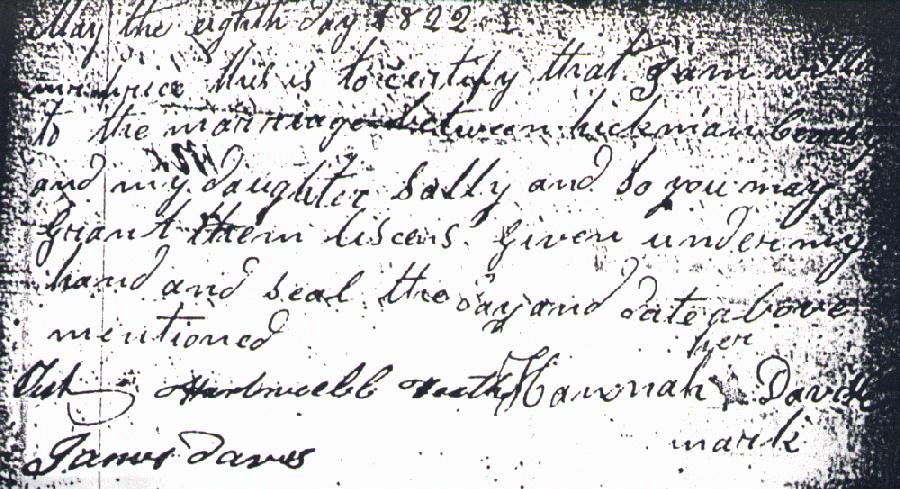 May the eighth day 1822
this is to certify that I am
to the marriage between hickman
and my daughter Sally and so you may
Grant them liscens. Given under my
hand and seal the day and date above
mentioned
her
Hannah Davis
mark
James Daves